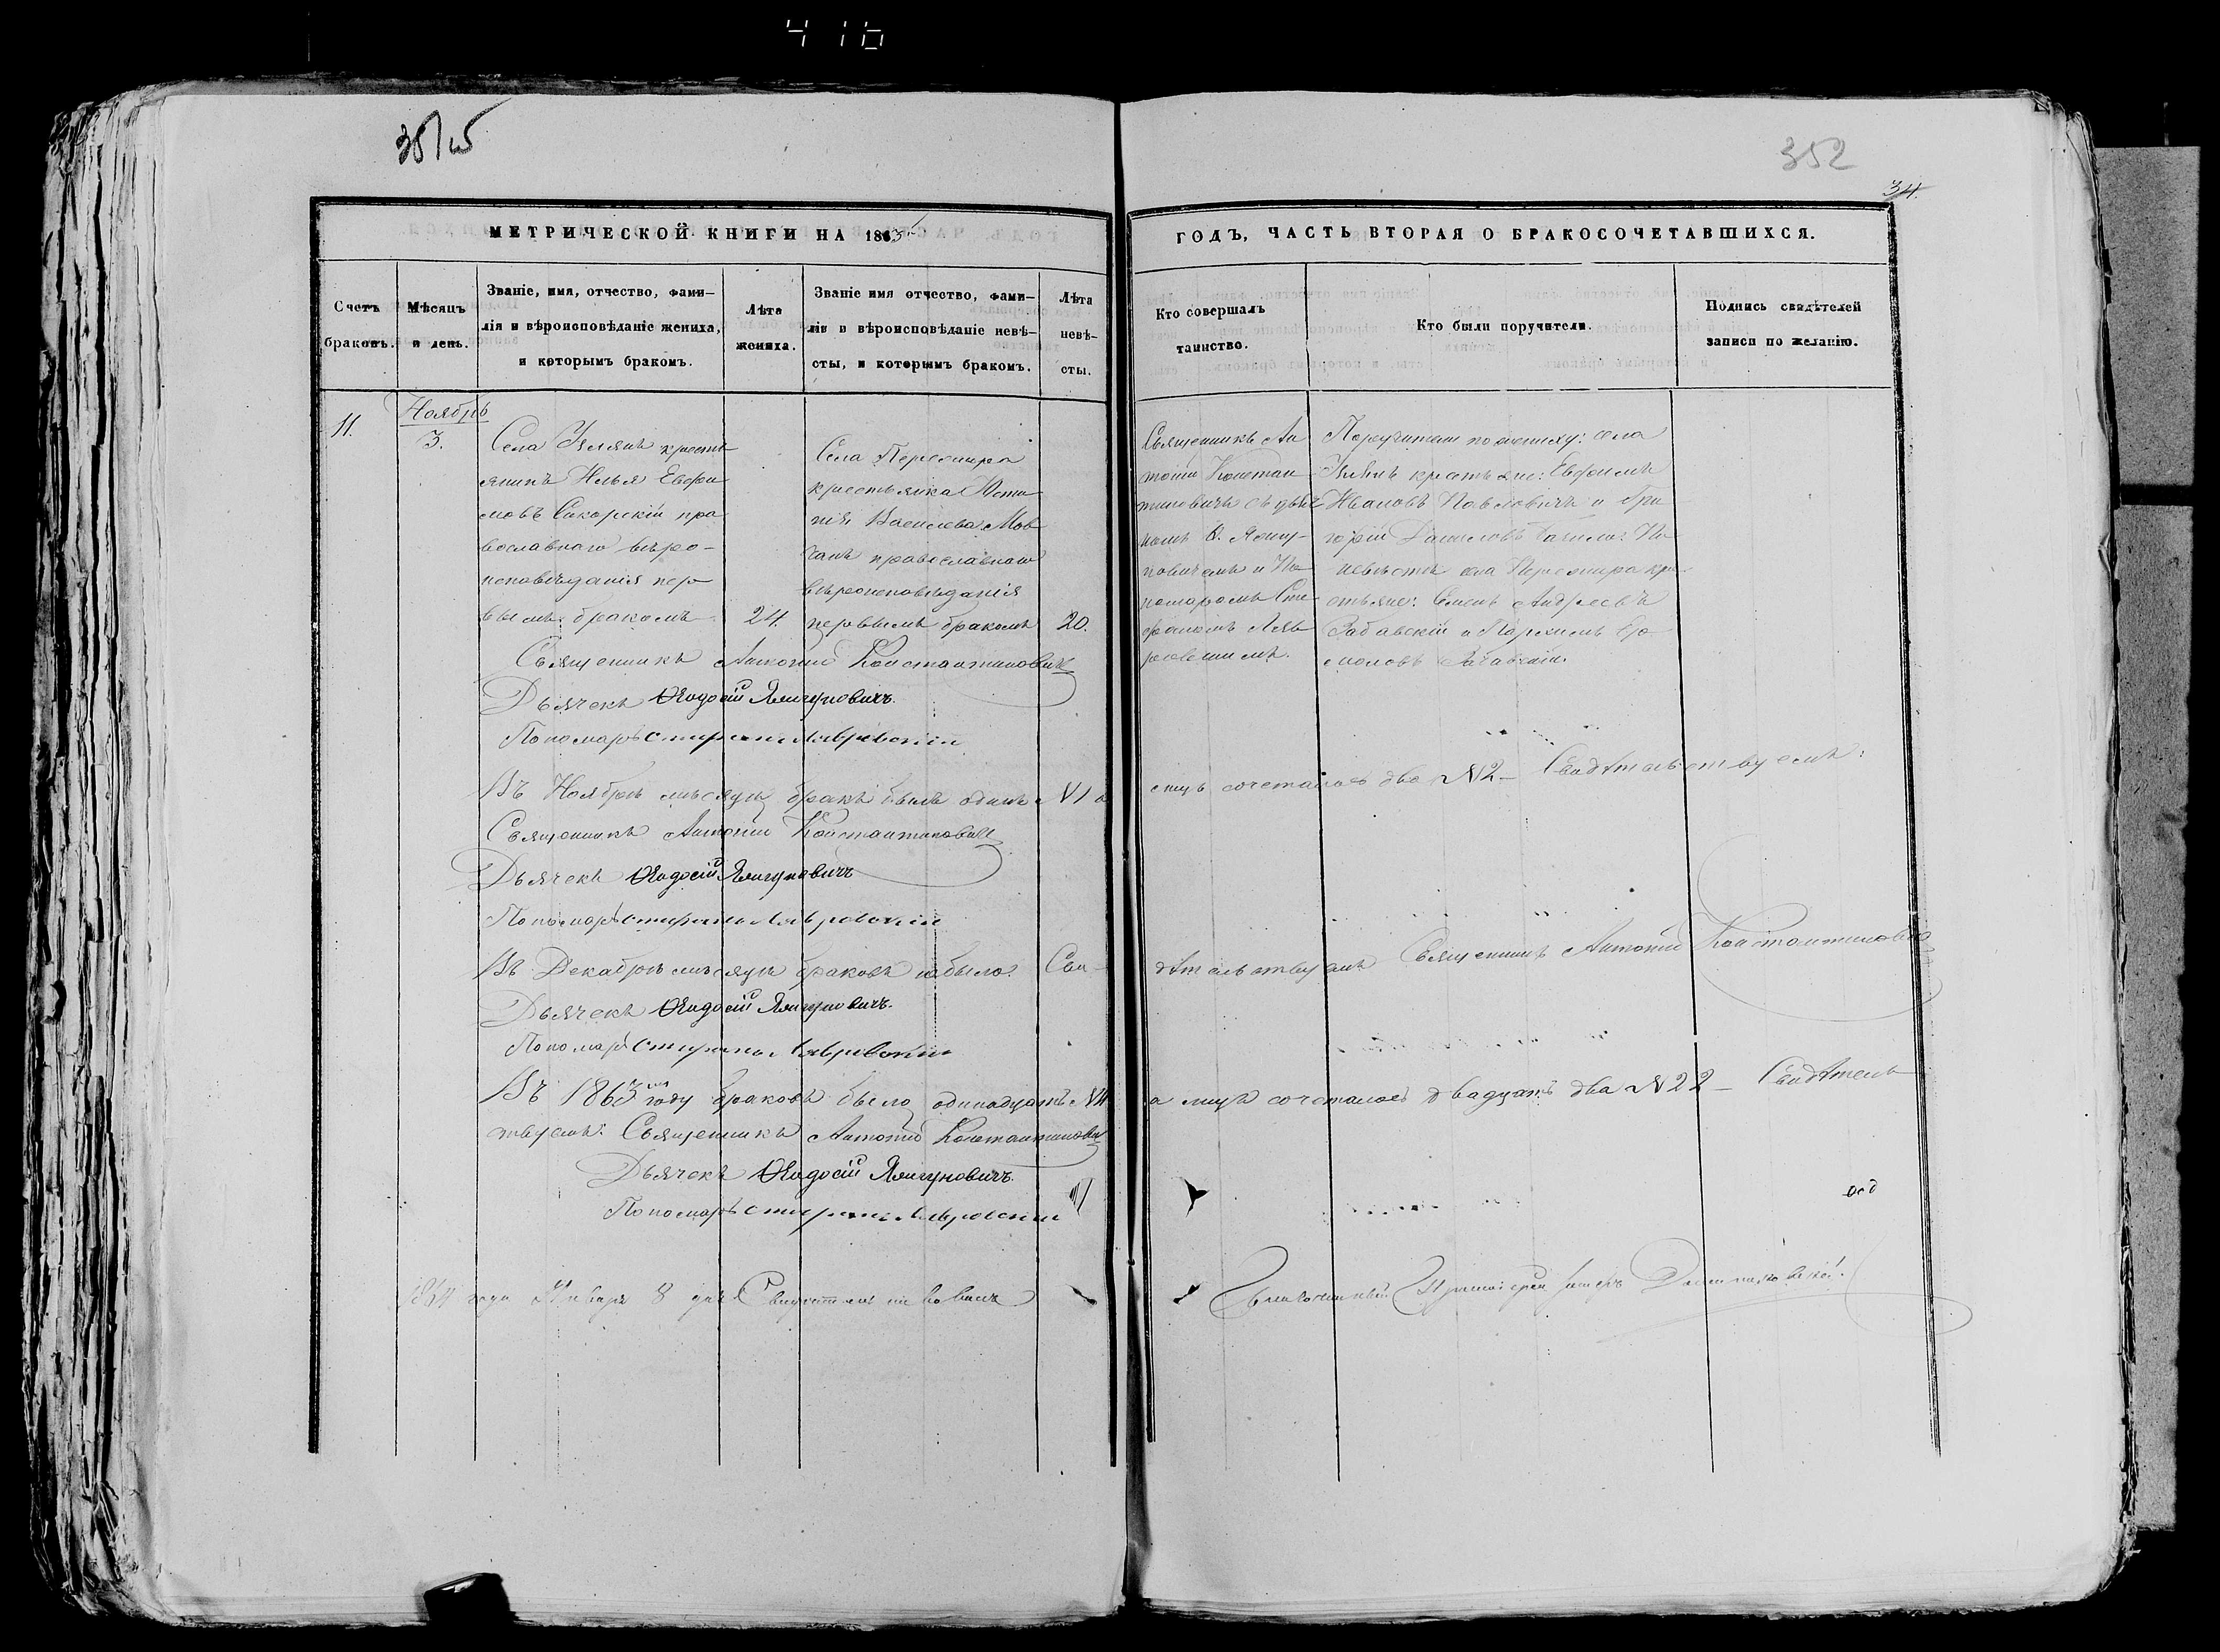 416
352
34.
МЕТРИЧЕСКОЙ КНИГИ НА 1863
ГОДЪ, ЧАСТЬ ВТОРАЯ О БРАКОСОЧЕТАВШИХСЯ.
Счетъ браковъ.
Мѣсяцъ и день.
Званіе, имя, отчество, фами-
лія и вѣроисповѣданіе жениха,
и которымъ бракомъ.
Лѣта
жениха.
Званіе имя отчество, фами-
лія и вѣроисповѣданіе невѣ-
сты, и которымъ бракомъ.
Лѣта
невѣ-
сты.
Кто совершалъ
таинство.
Кто были поручители.
Подпись свидѣтелей
записи по желанію.
11.
Ноябрь
3.
Села крестья
янинъ Илья Евфи
мовъ Сикорскій пра
вославнаго вѣро-
исповѣданія пер
вымъ бракомъ
24.
Села Пересыпа
крестьянка Усти
нія Василева Мов
чанъ православнаго
вѣроисповѣданія
первымъ бракомъ
20.
Священникъ Ан
тоній Констан
тиновичъ съ дьяч
и По
номаромъ Сте
фаномъ Ляв
ровскимъ.
Поручители по жениху: села
крестьяне: Евфимъ
Ивановъ Павловичъ и Гри
горій Даниловъ По
невѣстѣ села кре
стьяне: Семенъ Андреевъ
Забавскій и
Священникъ Антоній Константиновичъ
Дьячекъ Ѳеодосій Ялигуновичъ.
Пономарь Стефанъ Лявровскій
Въ Ноябрѣ мѣсяцѣ бракъ былъ одинъ N 1 а
лицъ сочеталось два N 2 – Свидѣтельствуемъ:
Священникъ Антоній Константиновичъ
Дьячекъ Ѳеодосій Ялигуновичъ
Пономарь Стефанъ Лявровскій
Въ Декабрѣ мѣсяцѣ браковъ не было. Сви-
дѣтельствуемъ Священникъ Антоній Константиновичъ
Дьячекъ Ѳеодосій Ялигуновичъ.
Пономарь Стефанъ Лявровскій
Въ 1863мъ году браковъ было одинадцать N 11
а лицъ сочеталось двадцать два N 22 – Свидѣтель
ствуемъ: Священникъ Антоній Константинови
Дьячекъ Ѳеодосій Ялигуновичъ.
Пономарь Стефанъ Лявровскій
1864 года Января 8 дня Свидѣтельствовалъ
Благочинный Протоіерей